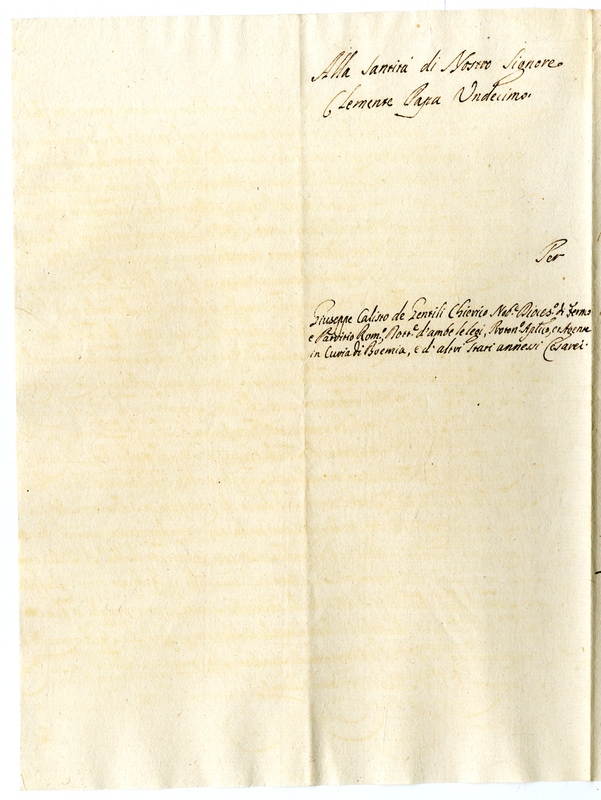 Alla Santità di Nostro Signore
Clemente Papa Undecimo.
Per
Giuseppe Calisto de Gentili Chierico Nob.e Dioces.o di Fermo
e Patritio Rom.o, Dott.e d'ambe le legi, Agente
in Curia di Boemia, e d'altri Stati annessi Cesarei.